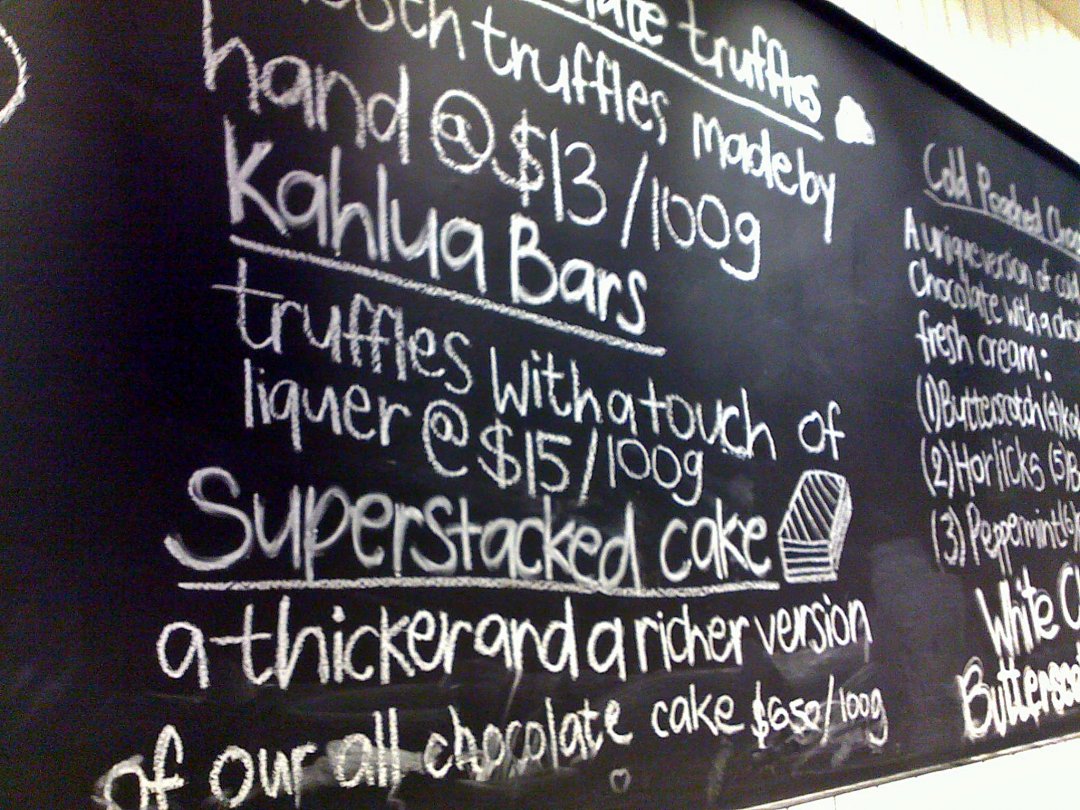 truffles
truffles made by
hand @ $13/100g
Kahlua Bars
truffles with a touch of
liquer @ $15/100g
Superstacked cake
a thicker and a richer version
of our all chocolate cake $6.50/100g
Cold
A unique version of cold
chocolate with a
fresh cream:
(1) Butterscotch (4)
(2) Horlicks (5)
(3) Peppermint (6)
White